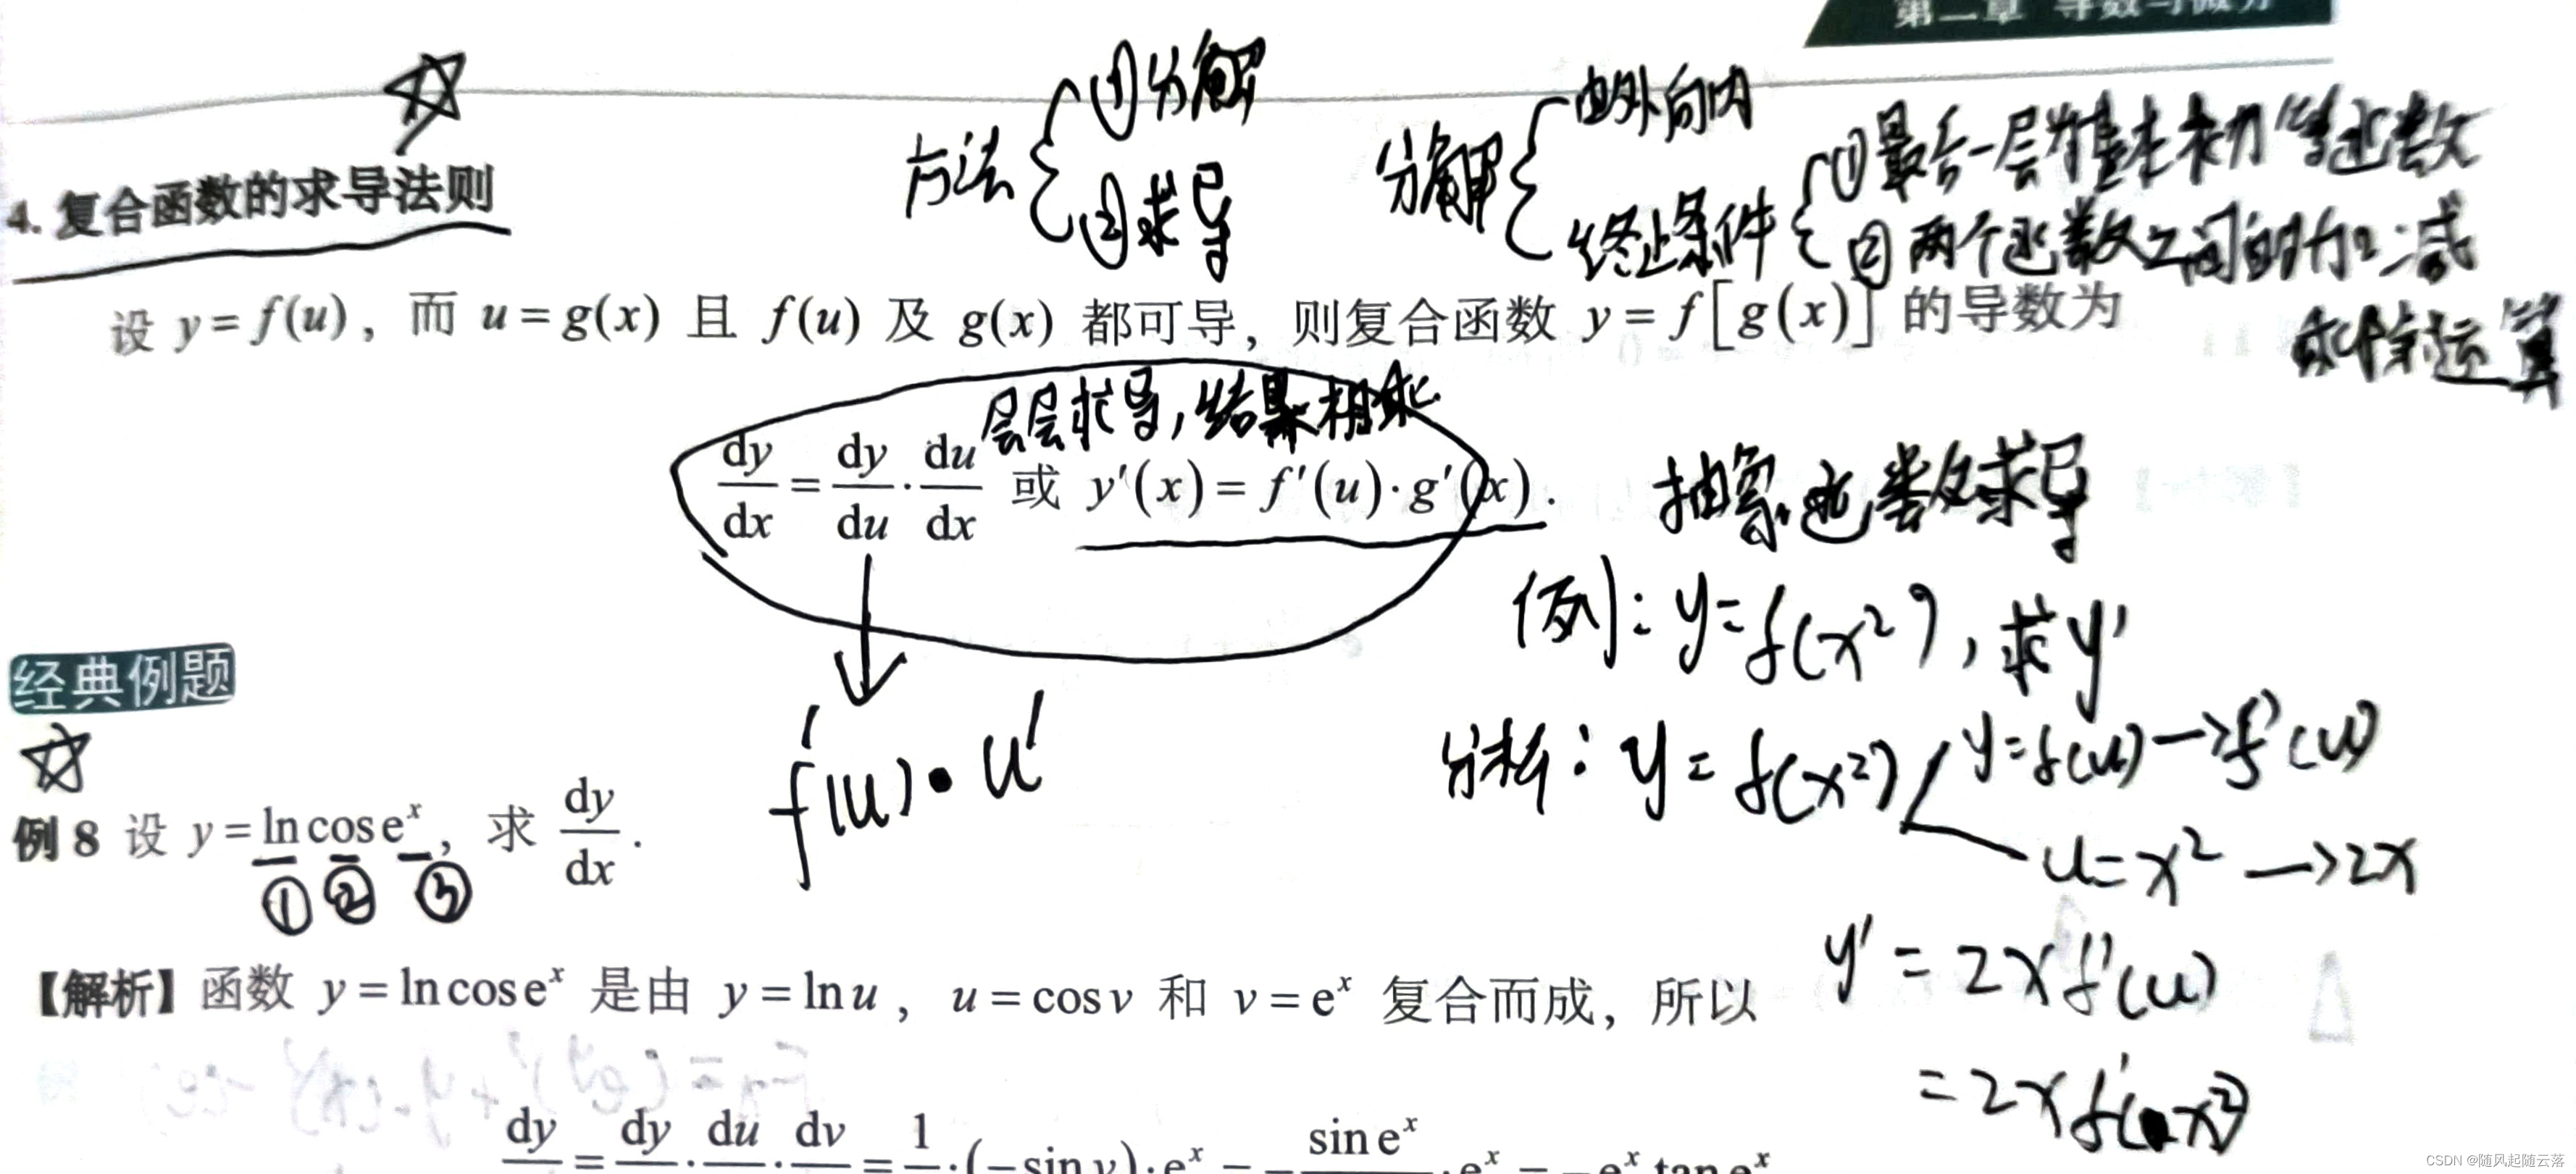 第二章 导数与微分
方法 ①分解 ②求导
分解 由外向内
终止条件 ①最后一层为基本初等函数
②两个函数之间的加减
乘除运算
4. 复合函数的求导法则
设 y = f(u)，而 u = g(x) 且 f(u) 及 g(x) 都可导，则复合函数 y = f[g(x)] 的导数为
层层求导，结果相乘
dy/dx = dy/du · du/dx 或 y′(x) = f′(u)·g′(x).
f′(u)·u′
抽象函数求导
例：y=f(x²)，求y′
分析：y=f(x²) y=f(u)→f′(u)
u=x²→2x
y′=2xf′(u)
=2xf′(x²)
经典例题
例 8 设 y = ln cos eˣ，求 dy/dx.
① ② ③
【解析】函数 y = ln cos eˣ 是由 y = ln u，u = cos v 和 v = eˣ 复合而成，所以
dy = dy · du · dv = 1 ·(−sin v)·eˣ = − sin eˣ ·eˣ = −eˣ tan eˣ
CSDN @随风起随云落